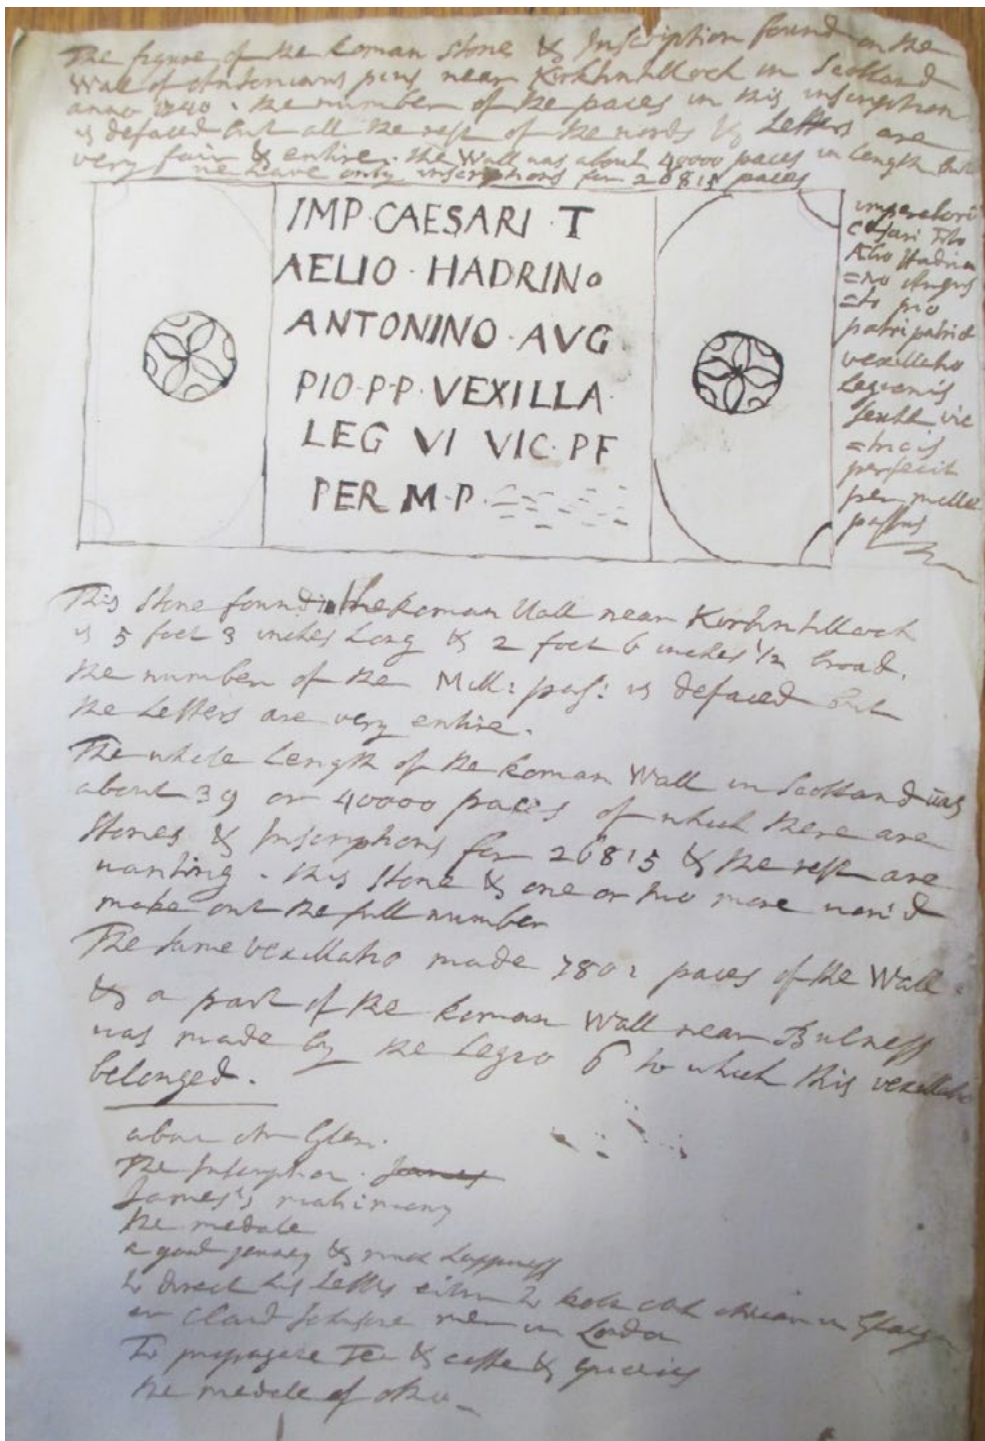 The figure of the Roman Stone & Inscription found on the
Wall of Antoninus pius near Kirkintilloch in Scotland
anno 1740. the number of the paces in this inscription
is defaced but all the rest of the words & Letters are
very fair & entire. the Wall was about 40000 paces in length but
we have only inscriptions for 26815 paces
IMP·CAESARI·T
AELIO·HADRINO
ANTONINO·AVG
PIO·P·P·VEXILLA·
LEG VI VIC·PF
PER M·P·
imperatori
Cesari Tito
Aelio Hadria
=no Augus
=to pio
patri patriæ
vexillatio
Legionis
Sextæ vic
=tricis
perfecit
per mille
passus
This Stone found in the Roman Wall near Kirkintilloch
is 5 foot 3 inches Long & 2 foot 6 inches 1/2 broad.
the number of the Mill: pas: is defaced but
the Letters are very entire.
The whole Length of the Roman Wall in Scotland was
about 39 or 40000 paces of which there are
Stones & Inscriptions for 26815 & the rest are
wanting. this Stone & one or two more
make out the full number
The same Vexillatio made 7801 paces of the Wall.
& a part of the Roman Wall near Bulness
was made by the Legio 6 to which this vexillatio
belonged.
The Inscription. James
James's matrimony
the medale
a good jorney & much happiness
to direct his Letters either to in
or in London
To propagate Tea & coffe &
the medale of